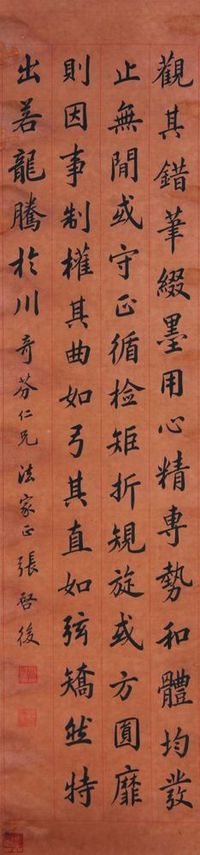 觀其錯筆綴墨用心精專勢和體均發
止無閒或守正循检矩折規旋或方圓靡
則因事制權其曲如弓其直如弦矯然特
出若龍騰於川 奇芬仁兄 法家正 張啓後